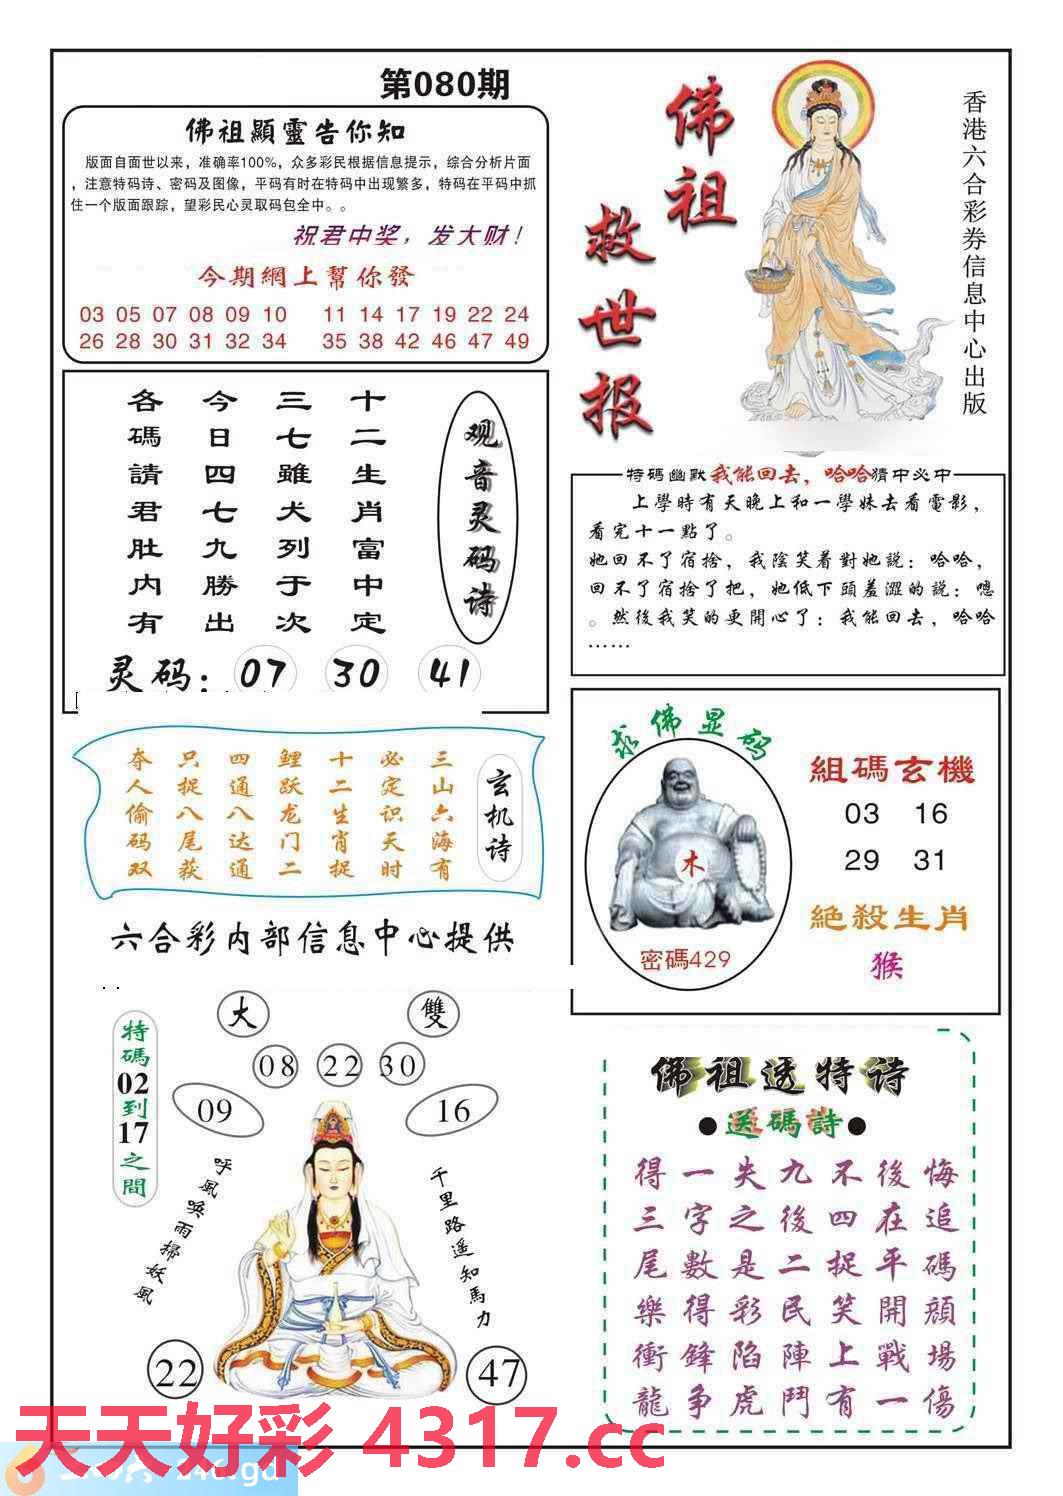 第080期
佛祖顯靈告你知
版面自面世以来，准确率100%，众多彩民根据信息提示，综合分析片面
，注意特码诗、密码及图像，平码有时在特码中出现繁多，特码在平码中抓
住一个版面跟踪，望彩民心灵取码包全中。。
祝君中奖，发大财！
今期網上幫你發
03 05 07 08 09 10 11 14 17 19 22 24
26 28 30 31 32 34 35 38 42 46 47 49
佛祖
救世报
香港六合彩券信息中心出版
观音灵码诗
十二生肖富中定
三七雖犬列于次
今日四七九勝出
各碼請君肚内有
灵码：07 30 41
特碼幽默我能回去，哈哈猜中必中
上學時有天晚上和一學妹去看電影，
看完十一點了。
她回不了宿捨，我陰笑着對她説：哈哈，
回不了宿捨了把，她低下頭羞澀的説：嗯
。然後我笑的更開心了：我能回去，哈哈
……
玄机诗
三山六海有
必定识天时
十二生肖捉
鲤跃龙门二
四通八达通
只捉八尾获
夺人偷码双
六合彩内部信息中心提供
求佛显码
木
密碼429
組碼玄機
03 16
29 31
絕殺生肖
猴
特碼02到17之間
大
雙
08 22 30
09
16
呼風喚雨掃妖風
千里路遥知馬力
22
47
佛祖透特诗
●送碼詩●
得一失九不後悔
三字之後四在追
尾數是二捉平碼
樂得彩民笑開顔
衝鋒陷陣上戰場
龍争虎鬥有一傷
天天好彩 4317.cc
246.gd